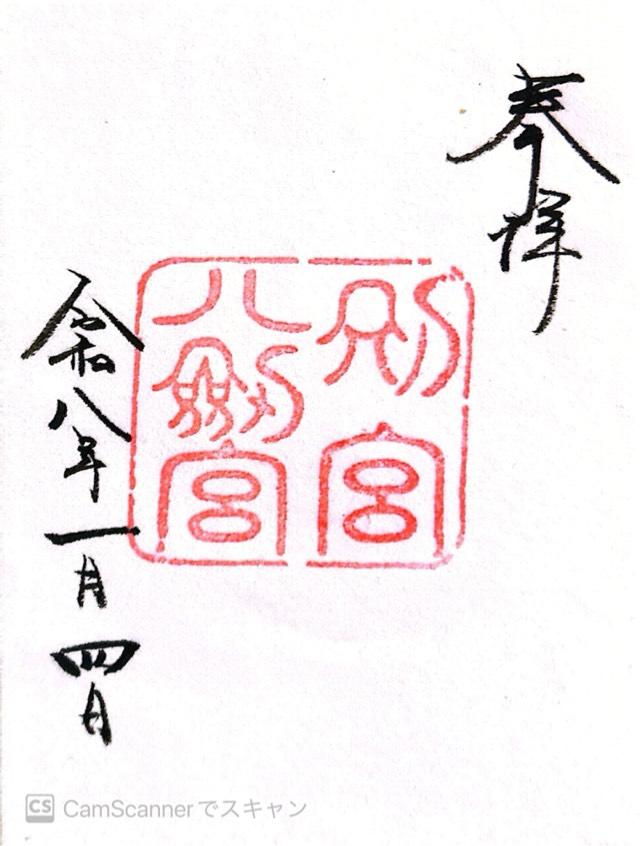 奉拝
別宮
八劔宮
令和八年一月四日
CamScannerでスキャン